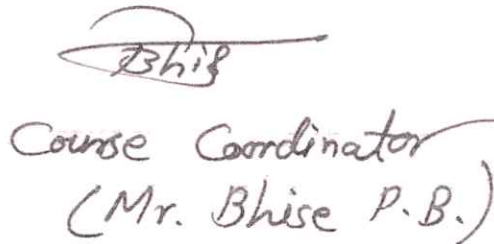 Bhis
Course Coordinator
(Mr. Bhise P.B.)